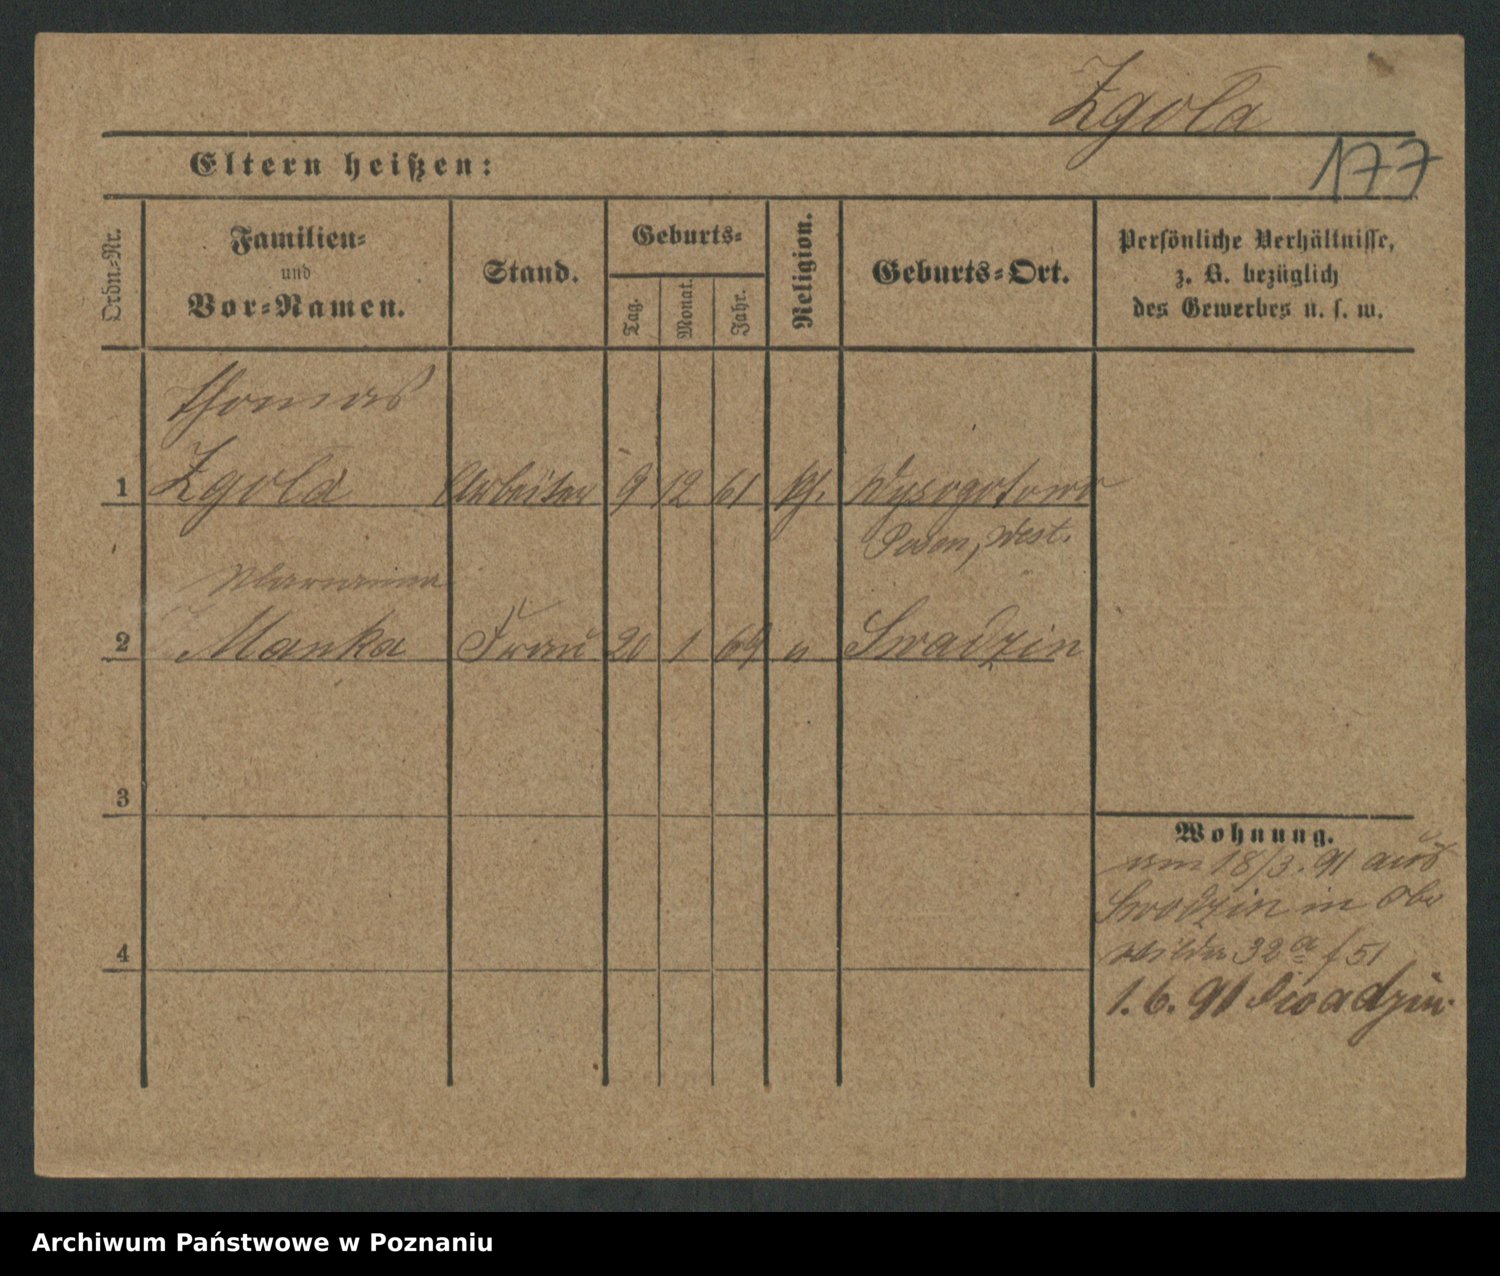 Zgola
177
Eltern heißen:
Ordn.-Nr.
Familien-
und
Vor-Namen.
Stand.
Geburts-
Tag.
Monat.
Jahr.
Religion.
Geburts-Ort.
Persönliche Verhältnisse,
z. B. bezüglich
des Gewerbes u. s. w.
Thomas
1 Zgola Arbeiter 9 12 61 kf. Wysogotowo
Posen, West.
Marianna
2 Manka Frau 20 1 64 " Swadzin
3
4
Wohnung.
18/3. 91 aus
Swadzin in Obr
Wilda 32 a f 51
1. 6. 91 Swadzin.
Archiwum Państwowe w Poznaniu